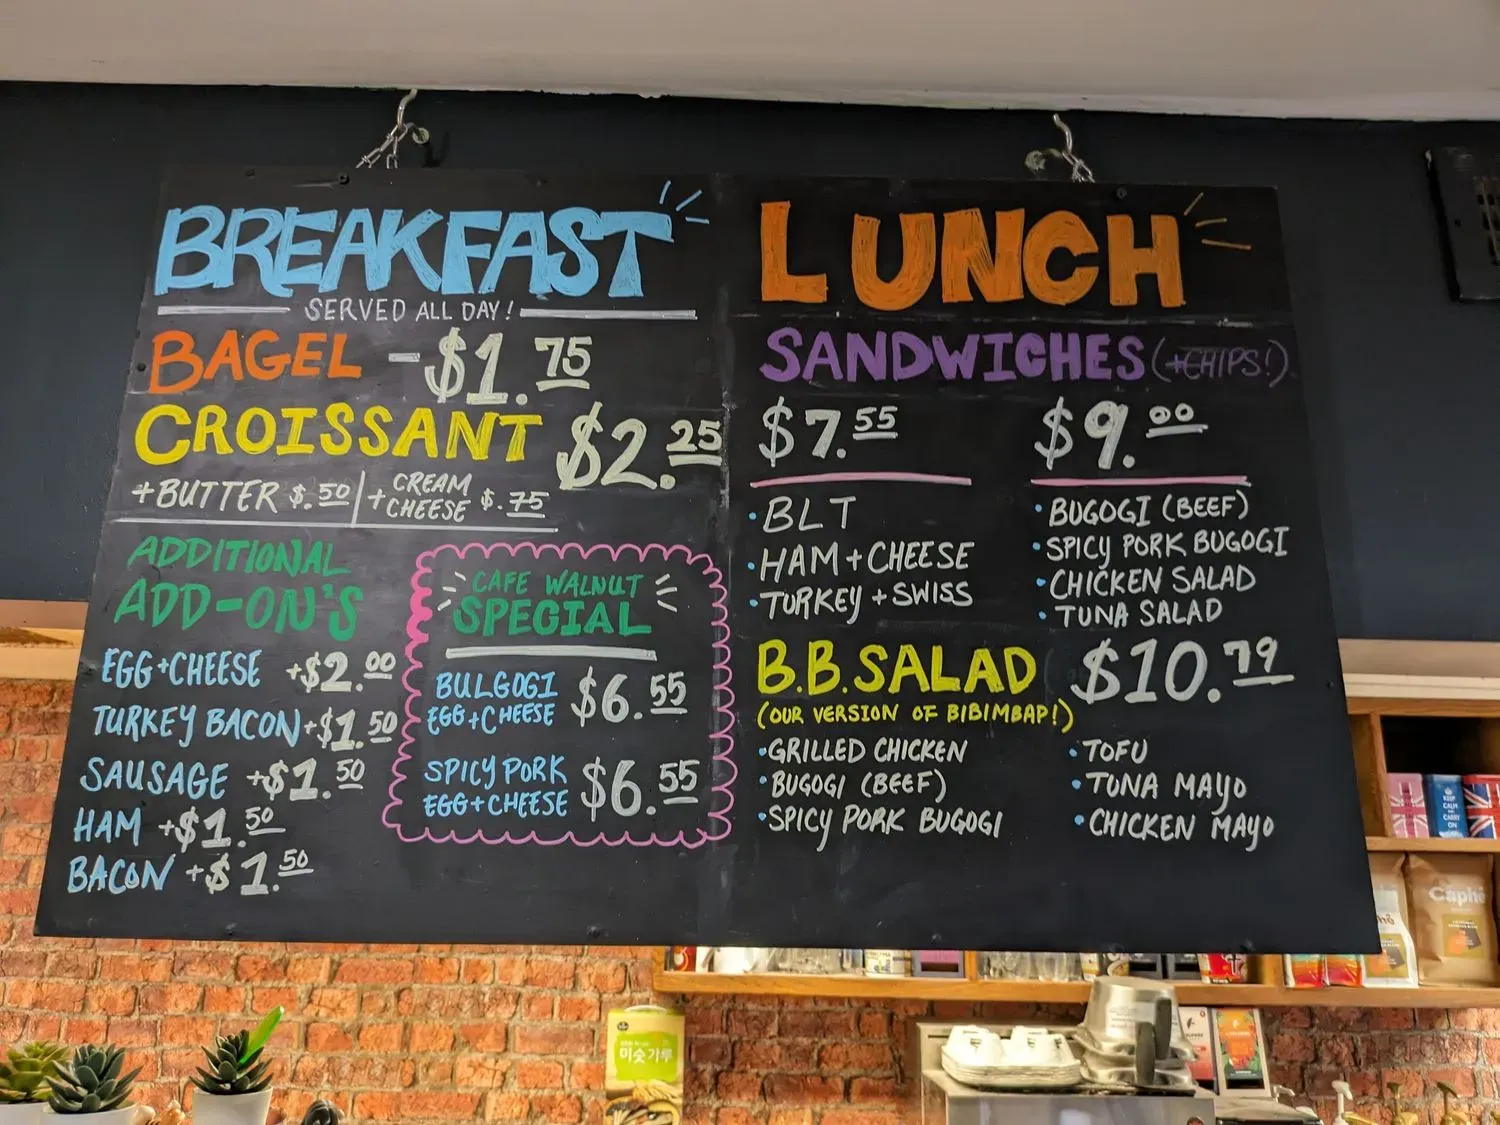 BREAKFAST
SERVED ALL DAY!
BAGEL - $1.75
CROISSANT $2.25
+BUTTER $.50 | +CREAM CHEESE $.75
ADDITIONAL
ADD-ON'S
EGG+CHEESE +$2.00
TURKEY BACON +$1.50
SAUSAGE +$1.50
HAM +$1.50
BACON +$1.50
CAFE WALNUT
SPECIAL
BULGOGI
EGG+CHEESE $6.55
SPICY PORK
EGG+CHEESE $6.55
LUNCH
SANDWICHES (+CHIPS!)
$7.55
• BLT
• HAM+CHEESE
• TURKEY+SWISS
$9.00
• BUGOGI (BEEF)
• SPICY PORK BUGOGI
• CHICKEN SALAD
• TUNA SALAD
B.B. SALAD $10.79
(OUR VERSION OF BIBIMBAP!)
• GRILLED CHICKEN
• BUGOGI (BEEF)
• SPICY PORK BUGOGI
• TOFU
• TUNA MAYO
• CHICKEN MAYO
KEEP
CALM
AND
CARRY
ON
Caphe
미숫가루